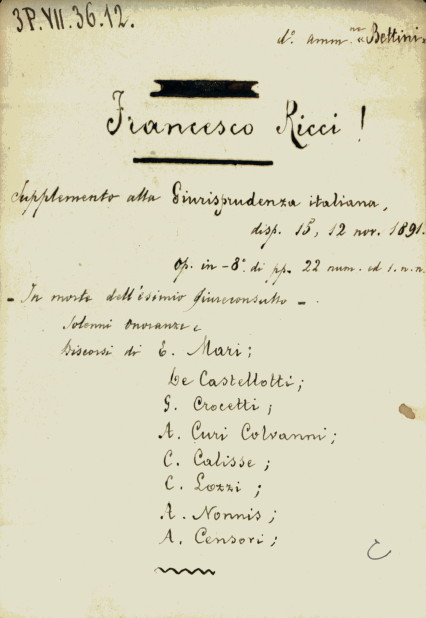 3P.VII.36.12.
d.º amm.ne «Bettini»
Francesco Ricci!
Supplemento alla Giurisprudenza italiana,
disp. 15, 12 nov. 1891.
op. in-8º di pp. 22 num. ed 1. n.n.
- In morte dell'esimio Giureconsulto -.
Solenni Onoranze e
Discorsi di E. Mari;
De Castellotti;
G. Crocetti;
A. Curi Colvanni;
C. Calisse;
C. Lozzi;
A. Nonnis;
A. Censori;